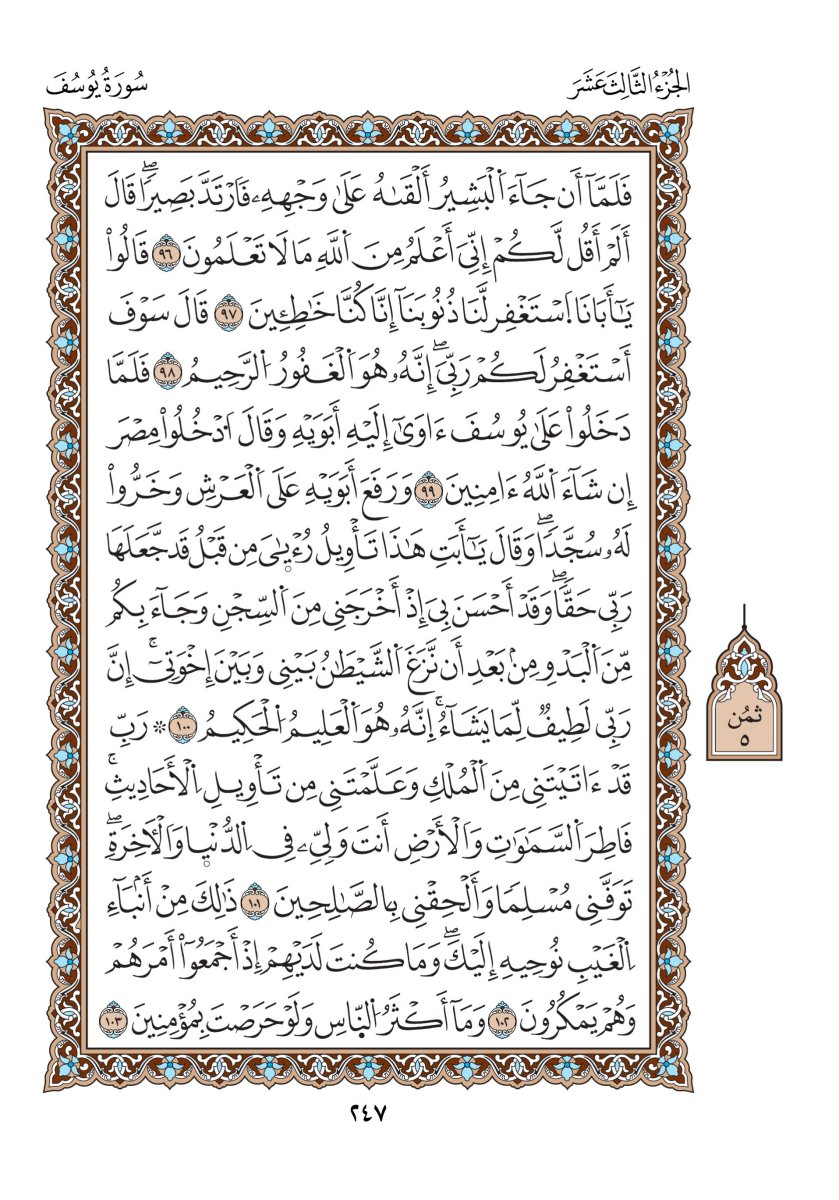 الجُزْءُ الثَّالِثَ عَشَرَ
سُورَةُ يُوسُفَ
فَلَمَّآ أَن جَآءَ اَ۬لْبَشِيرُ أَلْقَىٰهُ عَلَىٰ وَجْهِهِۦ فَارْتَدَّ بَصِيراٗۖ قَالَ
أَلَمْ أَقُل لَّكُمْ إِنِّيَ أَعْلَمُ مِنَ اَ۬للَّهِ مَا لَا تَعْلَمُونَ ٩٦ قَالُواْ
يَٰٓأَبَانَا اَ۪سْتَغْفِر لَّنَا ذُنُوبَنَآ إِنَّا كُنَّا خَٰطِـِٕينَ ٩٧ قَالَ سَوْفَ
أَسْتَغْفِرُ لَكُمْ رَبِّيَۖ إِنَّهُۥ هُوَ اَ۬لْغَفُورُ اُ۬لرَّحِيمُ ٩٨ فَلَمَّا
دَخَلُواْ عَلَىٰ يُوسُفَ ءَاوَىٰٓ إِلَيْهِ أَبَوَيْهِ وَقَالَ اَ۟دْخُلُواْ مِصْرَ
إِن شَآءَ اَ۬للَّهُ ءَامِنِينَ ٩٩ وَرَفَعَ أَبَوَيْهِ عَلَى اَ۬لْعَرْشِ وَخَرُّواْ
لَهُۥ سُجَّداٗۖ وَقَالَ يَٰٓأَبَتِ هَٰذَا تَأْوِيلُ رُءْيٜىٰيَ مِن قَبْلُ قَد جَّعَلَهَا
رَبِّي حَقّاٗۖ وَقَدْ أَحْسَنَ بِيَ إِذْ أَخْرَجَنِي مِنَ اَ۬لسِّجْنِ وَجَآءَ بِكُم
مِّنَ اَ۬لْبَدْوِ مِنۢ بَعْدِ أَن نَّزَغَ اَ۬لشَّيْطَٰنُ بَيْنِي وَبَيْنَ إِخْوَتِيٓۚ إِنَّ
رَبِّي لَطِيفٞ لِّمَا يَشَآءُۚ إِنَّهُۥ هُوَ اَ۬لْعَلِيمُ اُ۬لْحَكِيمُ ١٠٠ ۞ رَبِّ
قَدْ ءَاتَيْتَنِي مِنَ اَ۬لْمُلْكِ وَعَلَّمْتَنِي مِن تَأْوِيلِ اِ۬لْأَحَادِيثِۚ
فَاطِرَ اَ۬لسَّمَٰوَٰتِ وَالْأَرْضِ أَنتَ وَلِيِّۦ فِي اِ۬لدُّنْيٜا وَالْأٓخِرَةِۖ
تَوَفَّنِي مُسْلِماٗ وَأَلْحِقْنِي بِالصَّٰلِحِينَ ١٠١ ذَٰلِكَ مِنْ أَنۢبَآءِ
اِ۬لْغَيْبِ نُوحِيهِ إِلَيْكَۖ وَمَا كُنتَ لَدَيْهِمْ إِذْ أَجْمَعُوٓاْ أَمْرَهُمْ
وَهُمْ يَمْكُرُونَ ١٠٢ وَمَآ أَكْثَرُ اُ۬لنَّاسِ وَلَوْ حَرَصْتَ بِمُؤْمِنِينَ ١٠٣
ثمُن
٥
٢٤٧